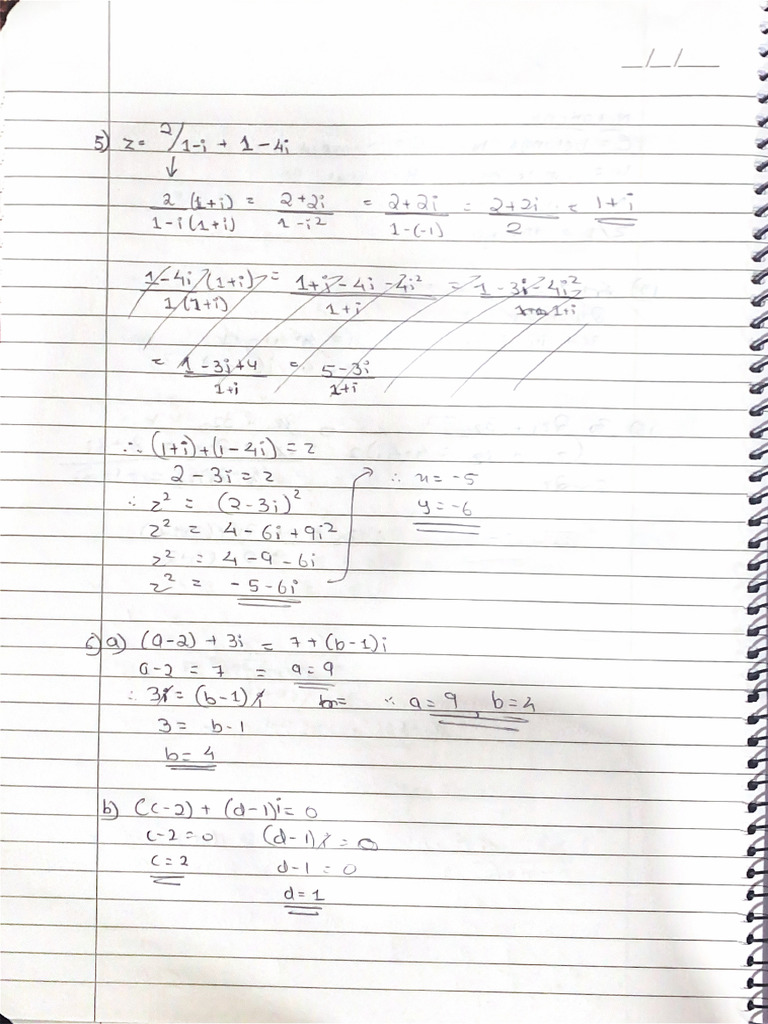 __/__/____
5) z = 2/1-i + 1 - 4i
↓
2 (1+i) / 1-i (1+i) = 2+2i / 1-i² = 2+2i / 1-(-1) = 2+2i / 2 = 1+i
1-4i (1+i) / 1 (1+i) = 1+i-4i-4i² / 1+i = 1-3i-4i² / 1+i
= 1-3i+4 / 1+i = 5-3i / 1+i
∴ (1+i)+(1-4i) = z
2 - 3i = z
∴ z² = (2-3i)²
z² = 4 - 6i + 9i²
z² = 4 - 9 - 6i
z² = -5 - 6i
∴ x = -5
y = -6
6) a) (a-2) + 3i = 7 + (b-1)i
a-2 = 7 = a = 9
∴ 3i = (b-1)i b= ∴ a = 9 b = 4
3 = b-1
b = 4
b) (c-2) + (d-1)i = 0
c-2 = 0 (d-1)i = 0
c = 2 d-1 = 0
d = 1